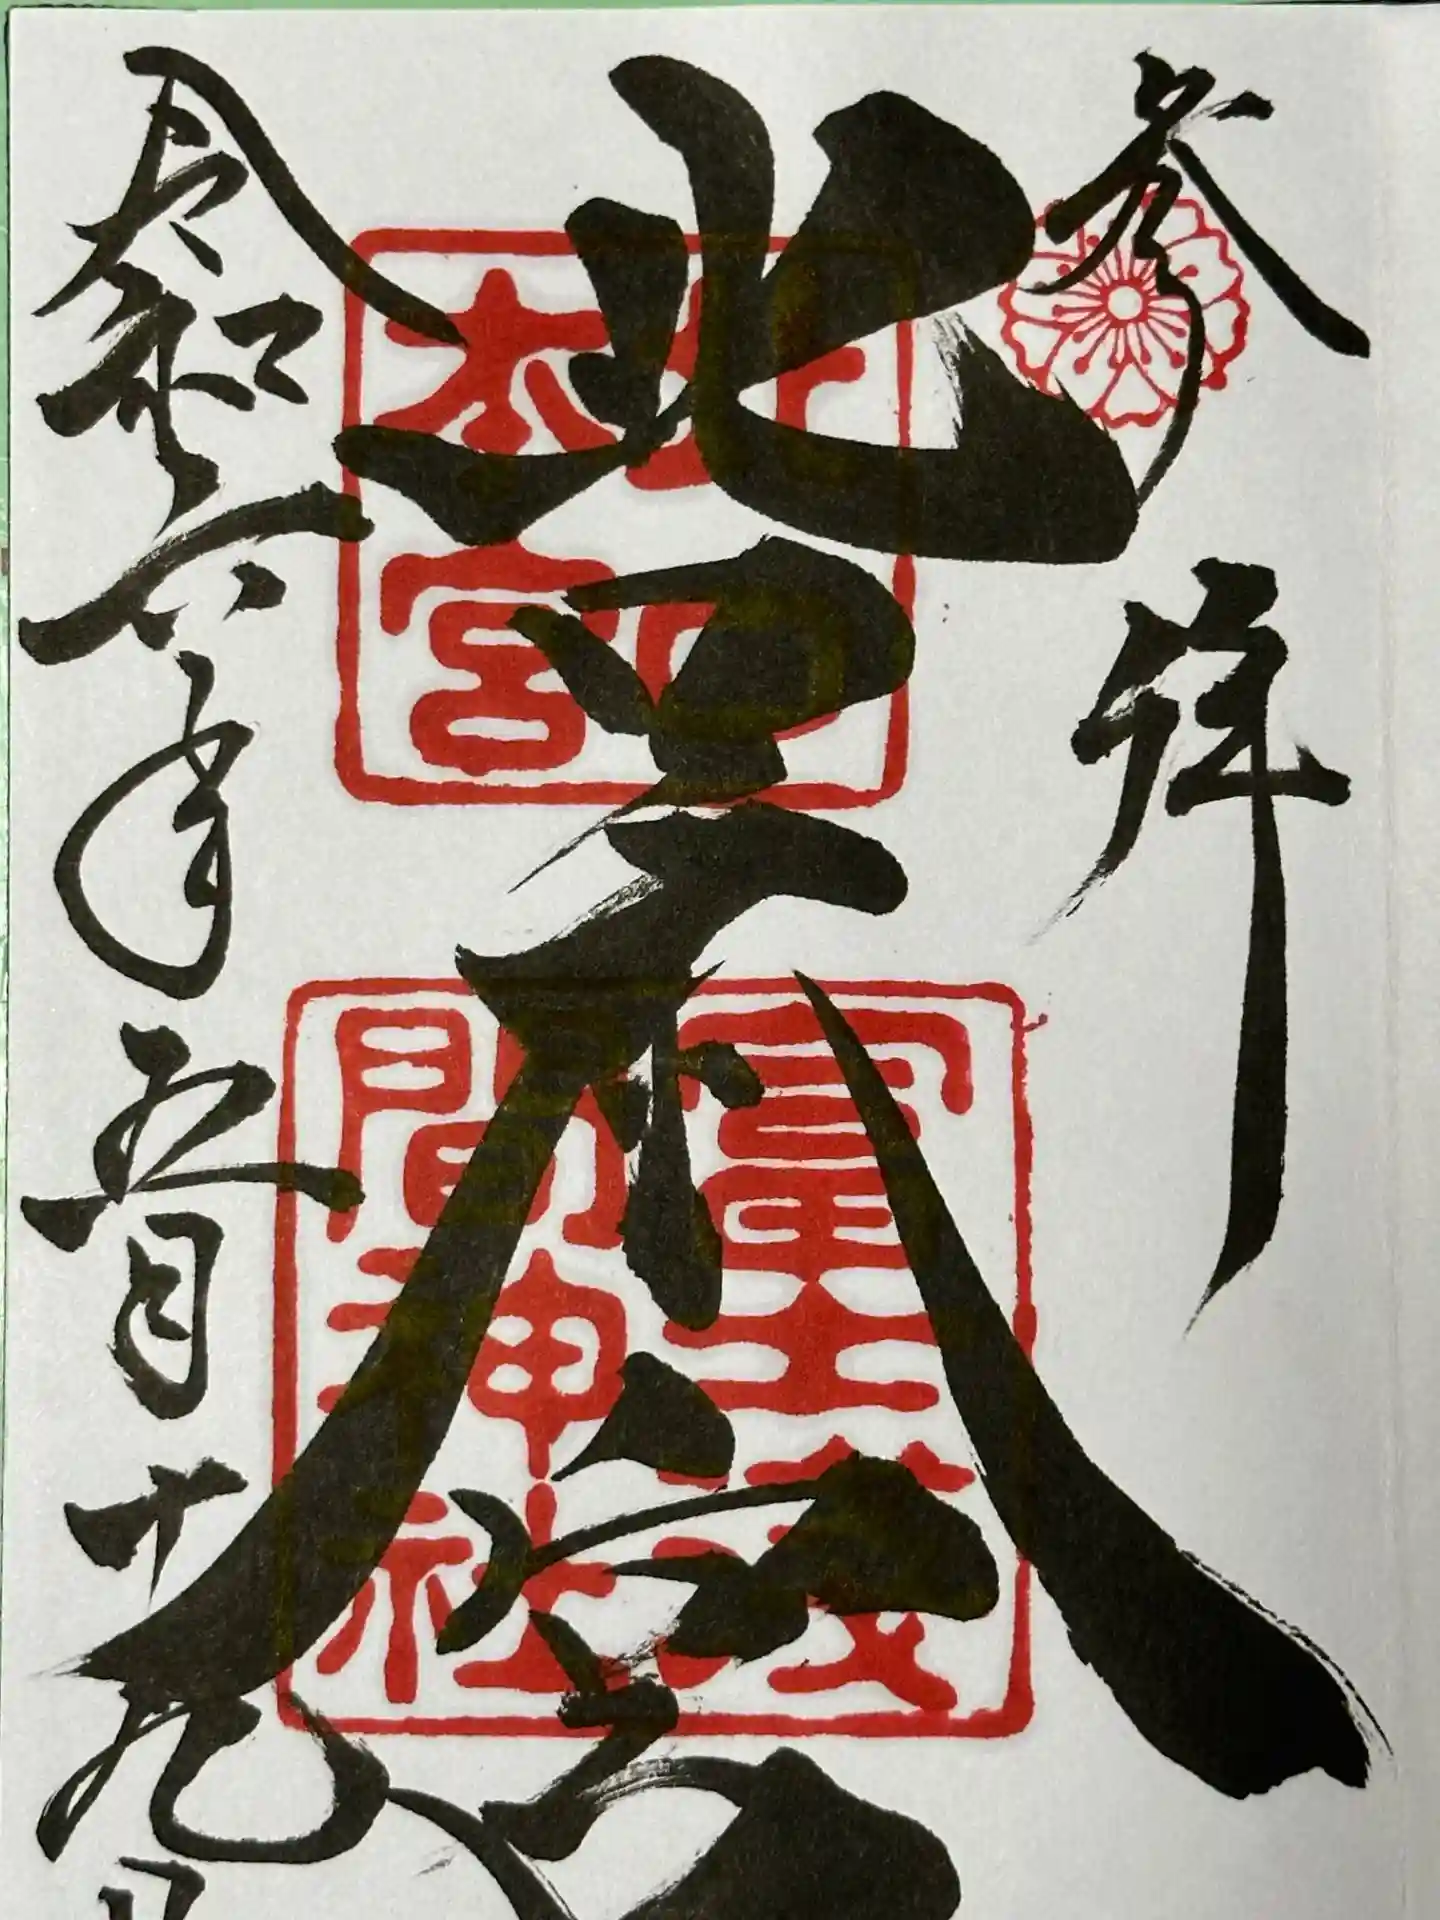 参拝
北口本宮
北口
本宮
富士淺
間神社
令和六年五月十九日